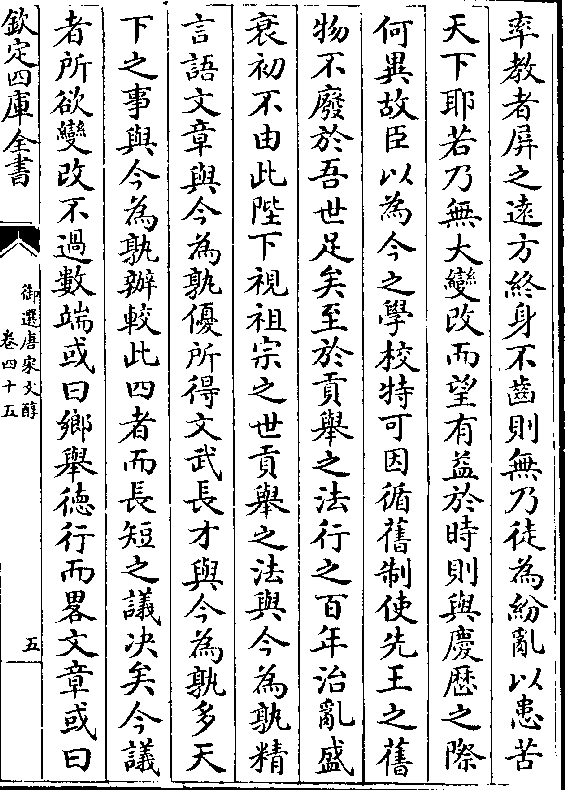 率教者屏之遠方終身不齒則無乃徒為紛亂以患苦
天下耶若乃無大變改而望有益於時則與慶歴之際
何異故臣以為今之學校特可因循舊制使先王之舊
物不廢於吾世足矣至於貢舉之法行之百年治亂盛
衰初不由此陛下視祖宗之世貢舉之法與今為孰精
言語文章與今為孰優所得文武長才與今為孰多天
下之事與今為孰辦較此四者而長短之議决矣今議
者所欲變改不過數端或曰鄉舉徳行而畧文章或曰
欽定四庫全書
御選唐宋文醇
卷四十五
五